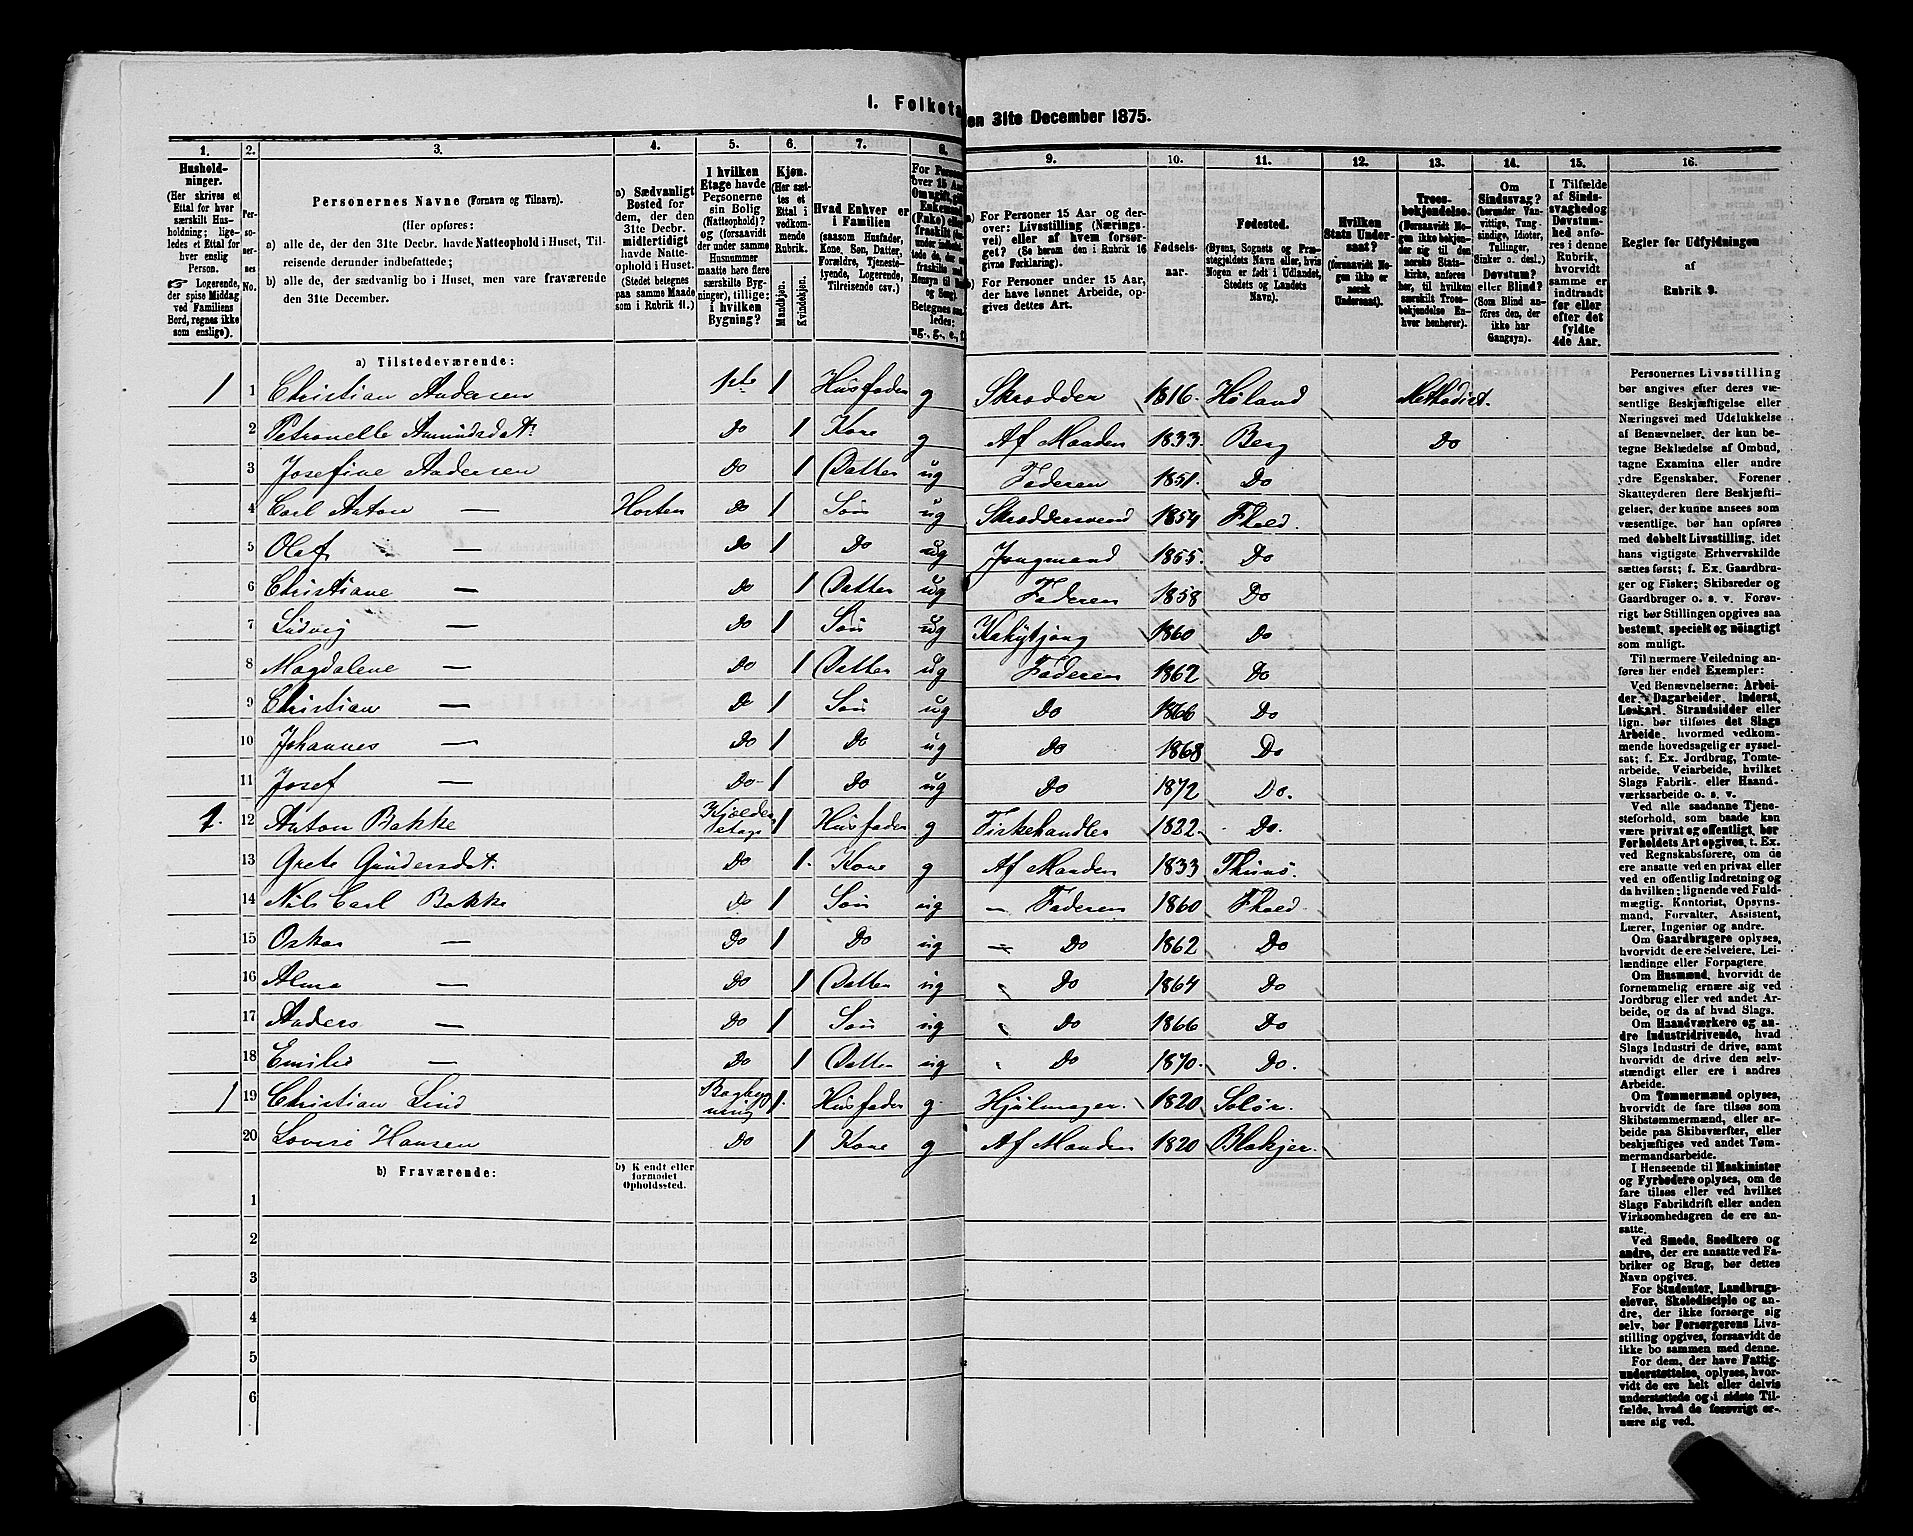 I. Folketæ
en 31te December 1875.
1. 2. 3. 4. 5. 6. 7. 8. 9. 10. 11. 12. 13. 14. 15. 16.
Hushold-
ninger.
(Her skrives et
Ettal for hver
særskilt Hus-
holdning; lige-
ledes et Ettal for
hver enslig
Person.
☞ Logerende,
der spise Middag
ved Familiens
Bord, regnes ikke
som enslige).
Per-
soner-
nes
No.
Personernes Navne (Fornavn og Tilnavn).
(Her opføres:
a) alle de, der den 31te Decbr. havde Natteophold i Huset, Til-
reisende derunder indbefattede;
b) alle de, der sædvanlig bo i Huset, men vare fraværende
den 31te December.
a) Sædvanligt
Bosted for
dem, der den
31te Decbr.
midlertidigt
havde Natte-
ophold i Huset.
(Stedet betegnes
paa samme Maade
som i Rubrik 11.)
I hvilken
Etage havde
Personerne
sin Bolig
(Natteophold)?
og (forsaavidt
der under samme
Husnummer
maatte høre flere
særskilte Byg-
ninger), tillige:
i hvilken
Bygning?
Kjøn.
(Her sæt-
tes et
Ettal i
vedkom-
mende
Rubrik.
Mandkjøn.
Kvindekjøn.
Hvad Enhver er
i Familien
(saasom Husfader,
Kone, Søn, Datter,
Forældre, Tjeneste-
tyende, Logerende,
Tilreisende csv.)
For Personer 15 Aar og der-
over: Livsstilling (Nærings-
vei) eller af hvem forsør-
get? (Se herom den i Rubrik 16
givne Forklaring).
For Personer under 15 Aar,
der have lønnet Arbeide, op-
gives dettes Art.
Fødsels-
aar.
Fødested.
(Byens, Sognets og Præ-
stegjeldets Navn eller, hvis
Nogen er født i Udlandet,
Stedets og Landets
Navn).
Hvilken
Stats Under-
saat?
(forsaavidt No-
gen ikke er
norsk
Undersaat).
Troes-
bekjendelse.
(Forsaavidt No-
gen ikke bekjen-
der sig til den
norske Stats-
kirke, anføres
her, til hvilken
særskilt Troes-
bekjendelse En-
hver henhører).
Om
Sindssvag?
(herunder Van-
vittige, Tung-
sindige, Idioter,
Tullinger,
Sinker o. desl.)
Døvstum?
eller Blind?
(Som Blind an-
føres den, der
ikke har
Gangsyn).
I Tilfælde
af Sinds-
svaghed og
Døvstum-
hed anfø-
res i denne
Rubrik,
hvorvidt
samme er
indtraadt
før eller
efter det
fyldte
4de Aar.
Regler for Udfyldningen
af
Rubrik 9.
a) Tilstedeværende:
1 1 Christian Andersen 1ste 1 Husfader g Skrædder 1816 Høland Methodist.
2 Petronelle Amundsdat. Do 1 Kone g Af Manden 1833 Berg Do
3 Josefine Andersen Do 1 Datter ug Faderen 1851 Do
4 Carl Anton — Horten Do 1 Søn ug Skræddersvend 1854 Fhald.
5 Olaf — Do 1 Do ug Jungmand 1855 Do
6 Christiane — Do 1 Datter ug Faderen 1858 Do
7 Ludvig — Do 1 Søn ug 1860 Do
8 Magdalene — Do 1 Datter ug Faderen 1862 Do
9 Christian — Do 1 Søn ug Do 1866 Do
10 Johannes — Do 1 Do ug Do 1868 Do
11 Josef — Do 1 Do ug Do 1872 Do.
1. 12 Anton Bakke Kjælder etage 1 Husfader g Fiskehandler 1822 Do.
13 Grete Gundersdat. Do 1. Kone g Af Manden 1833 Thunø.
14 Nils Carl Bakke Do 1 Søn ug — Faderen 1860 Fhald.
15 Oskar — Do 1 Do ug — Do 1862 Do
16 Alma — Do 1 Datter ug Do 1864 Do
17 Anders — Do 1 Søn ug Do 1866 Do
18 Emilie — Do 1 Datter ug Do 1870. Do.
1 19 Christian Lind Bagbyg ning 1. Husfader g. Hjulmager. 1820 Solør.
20 Lovise Hansen Do 1 Kone g Af Manden 1820 Blakjer.
b) Fraværende:
b) Kjendt eller
formodet
Opholdssted.
1
2
3
4
5
6
Personernes Livsstilling
bør angives efter deres væ-
sentlige Beskjæftigelse eller
Næringsvei med Udelukkelse
af Benævnelser, der kun be-
tegne Beklædelse af Ombud,
tagne Examina eller andre
ydre Egenskaber. Forener
Skatteyderen flere Beskjæfti-
gelser, der kunne ansees som
væsentlige, bør han opføres
med dobbelt Livsstilling, idet
hans vigtigste Erhvervskilde
sættes først; f. Ex. Gaardbru-
ger og Fisker; Skibsreder og
Gaardbruger o. s. v. Forøv-
rigt bør Stillingen opgives saa
bestemt, specielt og nøiagtigt
som muligt.
Til nærmere Veiledning an-
føres her endel Exempler:
Ved Benævnelserne: Arbei-
der, Dagarbeider, Inderst,
Løskarl, Strandsidder eller
lign. bør tilføies det Slags
Arbeide, hvormed vedkom-
mende hovedsagelig er syssel-
sat; f. Ex. Jordbrug, Tomte-
arbeide, Veiarbeide, hvilket
Slags Fabrik- eller Haand-
værksarbeide o. s. v.
Ved alle saadanne Tjene-
steforhold, som baade kan
være privat og offentligt, bør
Forholdets Art opgives, t. Ex.
ved Regnskabsførere, om de
ere ansatte ved en privat eller
ved en offentlig Indretning og
da hvilken; lignende ved Fuld-
mægtig, Kontorist, Opsyns-
mand, Forvalter, Assistent,
Lærer, Ingeniør og andre.
Om Gaardbrugere oplyses,
hvorvidt de ere Selveiere, Lei-
lændinge eller Forpagtere.
Om Husmænd, hvorvidt de
fornemmelig ernære sig ved
Jordbrug eller ved andet Ar-
beide, og da af hvad Slags.
Om Haandværkere og an-
dre Industridrivende, hvad
Slags Industri de drive, samt
hvorvidt de drive den selv-
stændigt eller ere i andres
Arbeide.
Om Tømmermænd oplyses,
hvorvidt de fare tilsøs som
Skibstømmermænd, eller ar-
beide paa Skibsværfter, eller
beskjæftiges ved andet Tøm-
mermandsarbeide.
I Henseende til Maskinister
og Fyrbødere oplyses, om de
fare tilsøs eller ved hvilket
Slags Fabrikdrift eller anden
Virksomhedsgren de ere an-
satte.
Ved Smede, Snedkere og
andre, der ere ansatte ved Fa-
briker og Brug, bør dettes
Navn opgives.
For Studenter, Landbrugs-
elever, Skoledisciple og an-
dre, der ikke forsørge sig
selv, bør Forsørgerens Livs-
stilling opgives, forsaavidt de
ikke bo sammen med denne.
For dem, der have Fattig-
understøttelse, oplyses, hvor-
vidt de ere helt eller delvis
understøttede og i sidste Til-
fælde, hvad de forøvrigt er-
nære sig ved.